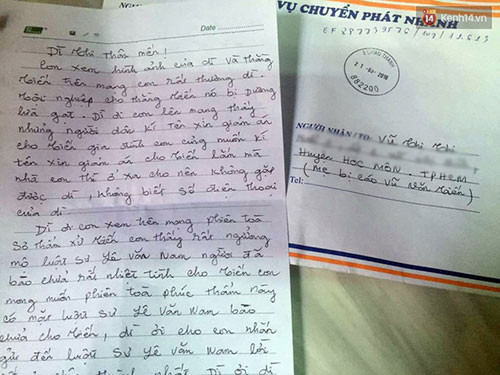 Date
Dì Thi thân mến!
Con xem hình ảnh của dì và thằng
Tiến trên mạng con rất thương dì.
Tội nghiệp cho thằng Tiến nó bị Dương
lừa gạt. Dì ơi con lên mạng thấy
những người dân kí tên xin giảm án
cho Tiến gia đình con cũng muốn kí
tên xin giảm án cho Tiến lắm mà
nhà con thì ở xa cho nên không gặp
được dì, không biết số điện thoại
của dì.
Dì ơi con xem trên mạng phiên toà
sơ thẩm xử Tiến con thấy rất ngưỡng
mộ luật sư Lê Văn Nam người đã
bào chữa rất nhiệt tình cho Tiến con
mong muốn phiên toà phúc thẩm này
có mặt luật sư Lê Văn Nam bào
chữa cho Tiến, dì ơi cho con nhắn
gửi đến luật sư Lê Văn Nam lời
nhất Dì ơi dì
VỤ CHUYỂN PHÁT NHANH
11-05-2016
882200
NGƯỜI NHẬN/TO: Vũ Thi Thi
Huyện HÓC MÔN. TP.HCM
(mẹ bị cáo Vũ Văn Tiến)
Tel:
14 Kenh14.vn